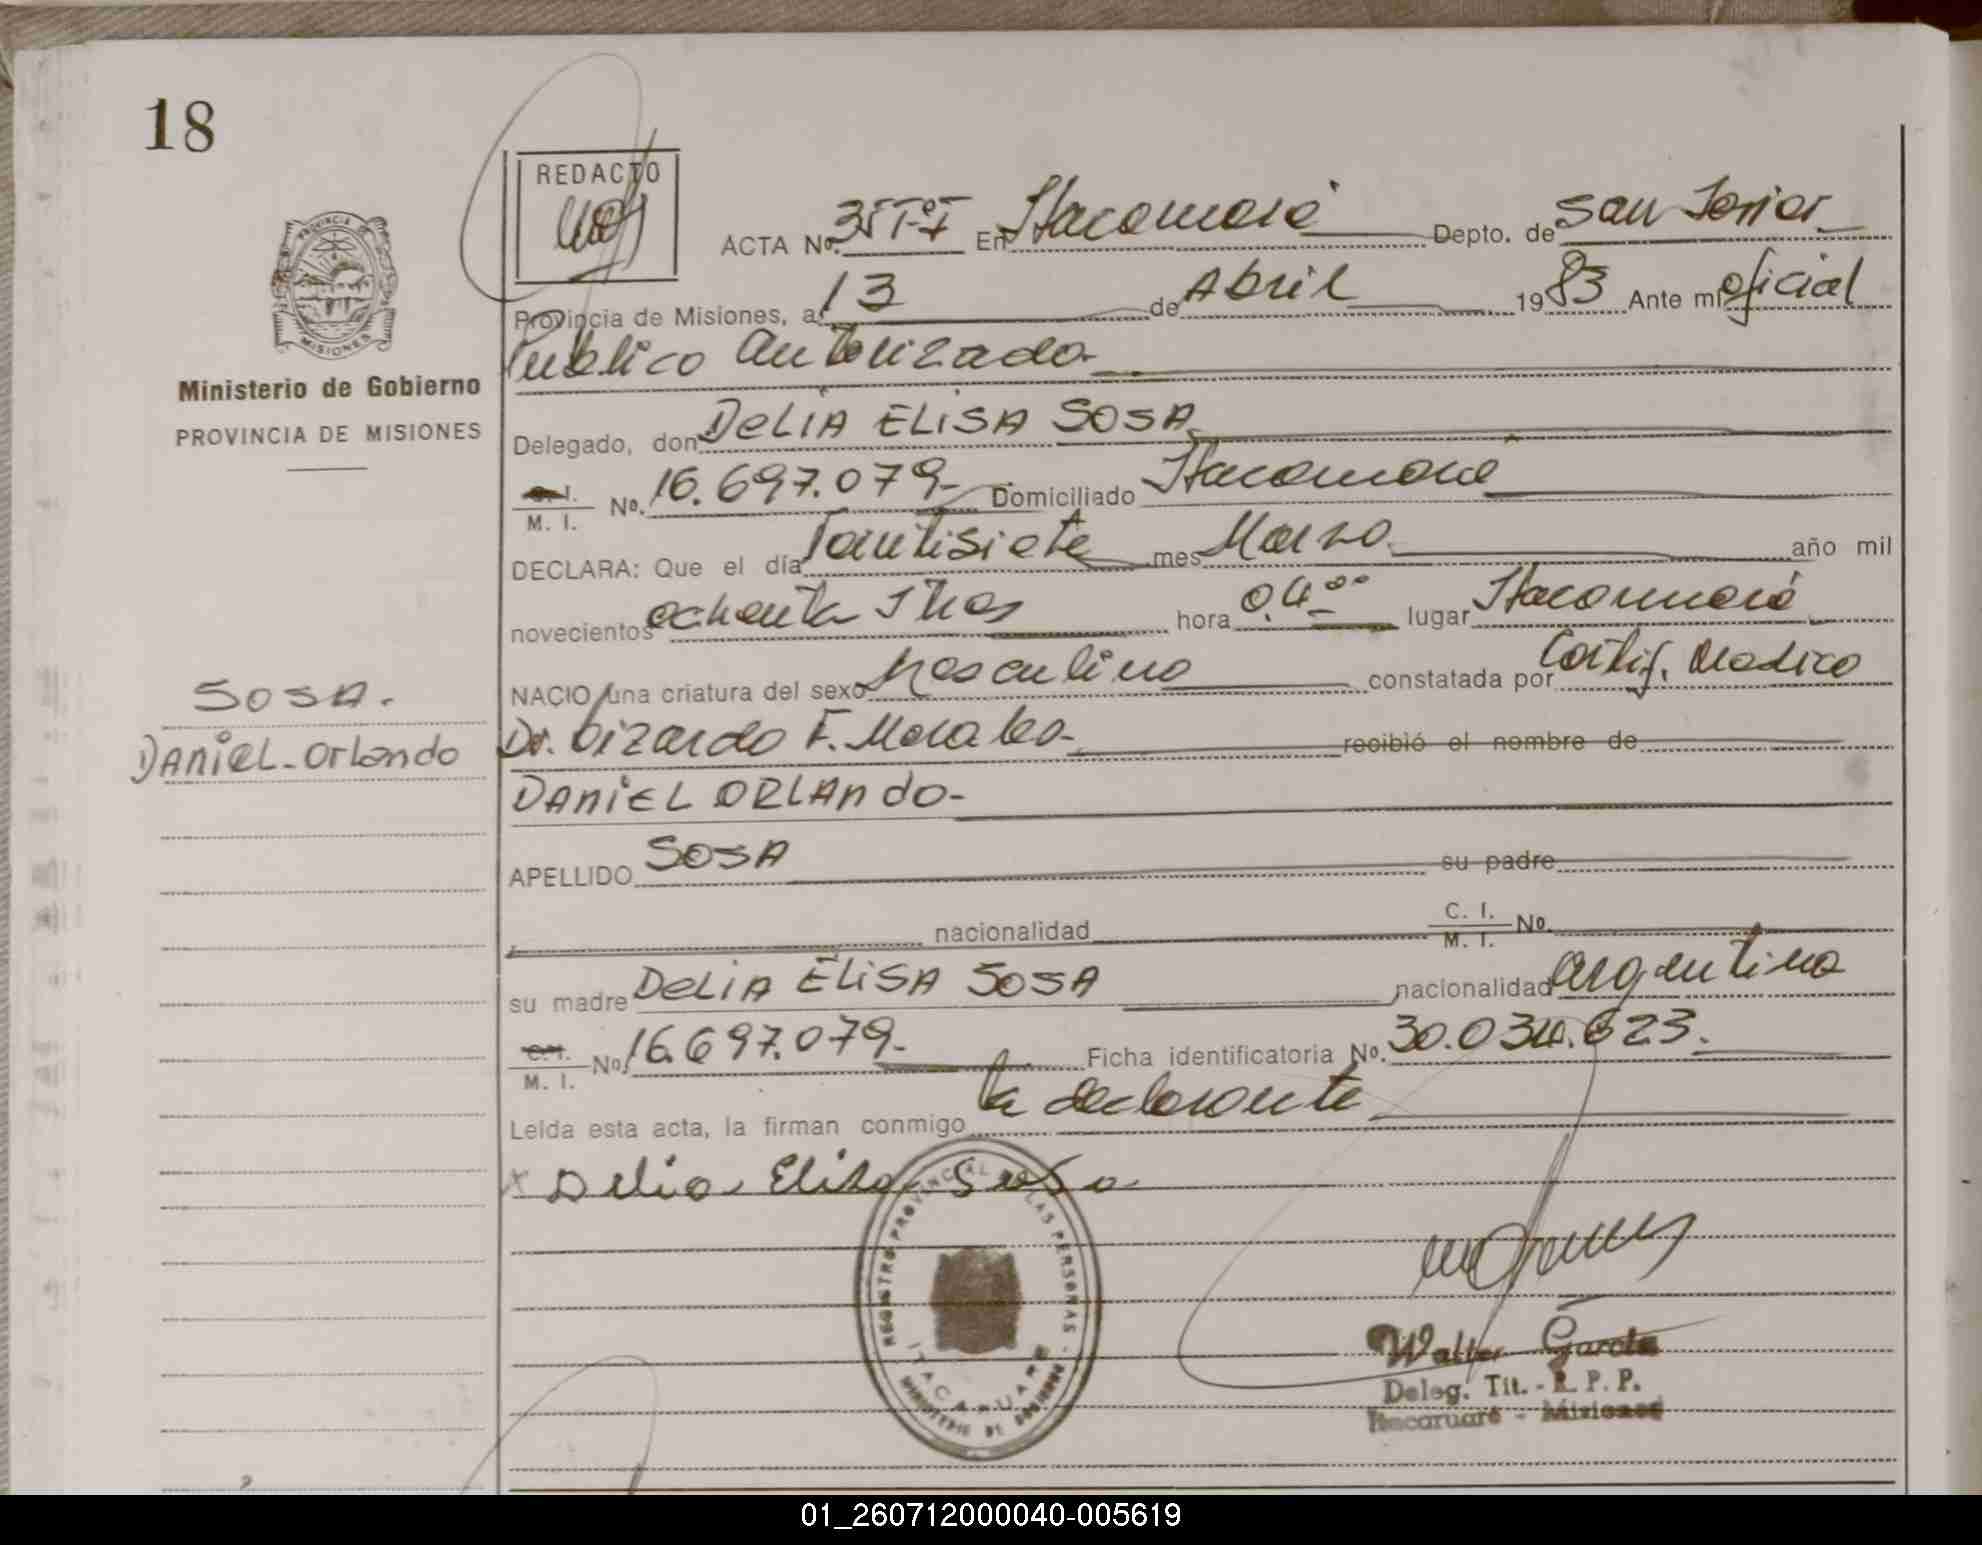 18
REDACTO
ACTA Nº 35 Tº I En Itacaruaré Depto. de San Javier
Provincia de Misiones, a 13 de Abril 1983 Ante mi oficial
Publico Autorizado-
PROVINCIA
MISIONES
Ministerio de Gobierno
PROVINCIA DE MISIONES
Delegado, don DELIA ELISA SOSA
C. I.
M. I. Nº. 16.697.079- Domiciliado Itacaruaré
DECLARA: Que el día mes Marzo año mil
novecientos ochenta y tres hora 04.00 lugar Itacaruaré
NACIO una criatura del sexo Masculino constatada por Certif. Medico
Dr. F. Morales- recibió el nombre de
DANIEL ORLANDO-
SOSA.
DANIEL-Orlando
APELLIDO SOSA su padre
nacionalidad C. I.
M. I. Nº
su madre DELIA ELISA SOSA nacionalidad argentina
C. I.
M. I. Nº 16.697.079- Ficha identificatoria Nº. 30.034.623.
Leída esta acta, la firman conmigo la declarante
x Delia Elisa Sosa
REGISTRO PROVINCIAL DE LAS PERSONAS -
ITACARUARE
MINISTERIO DE GOBIERNO
Walter García
Deleg. Tit. - R. P. P.
Itacaruaré - Misiones
01_260712000040-005619